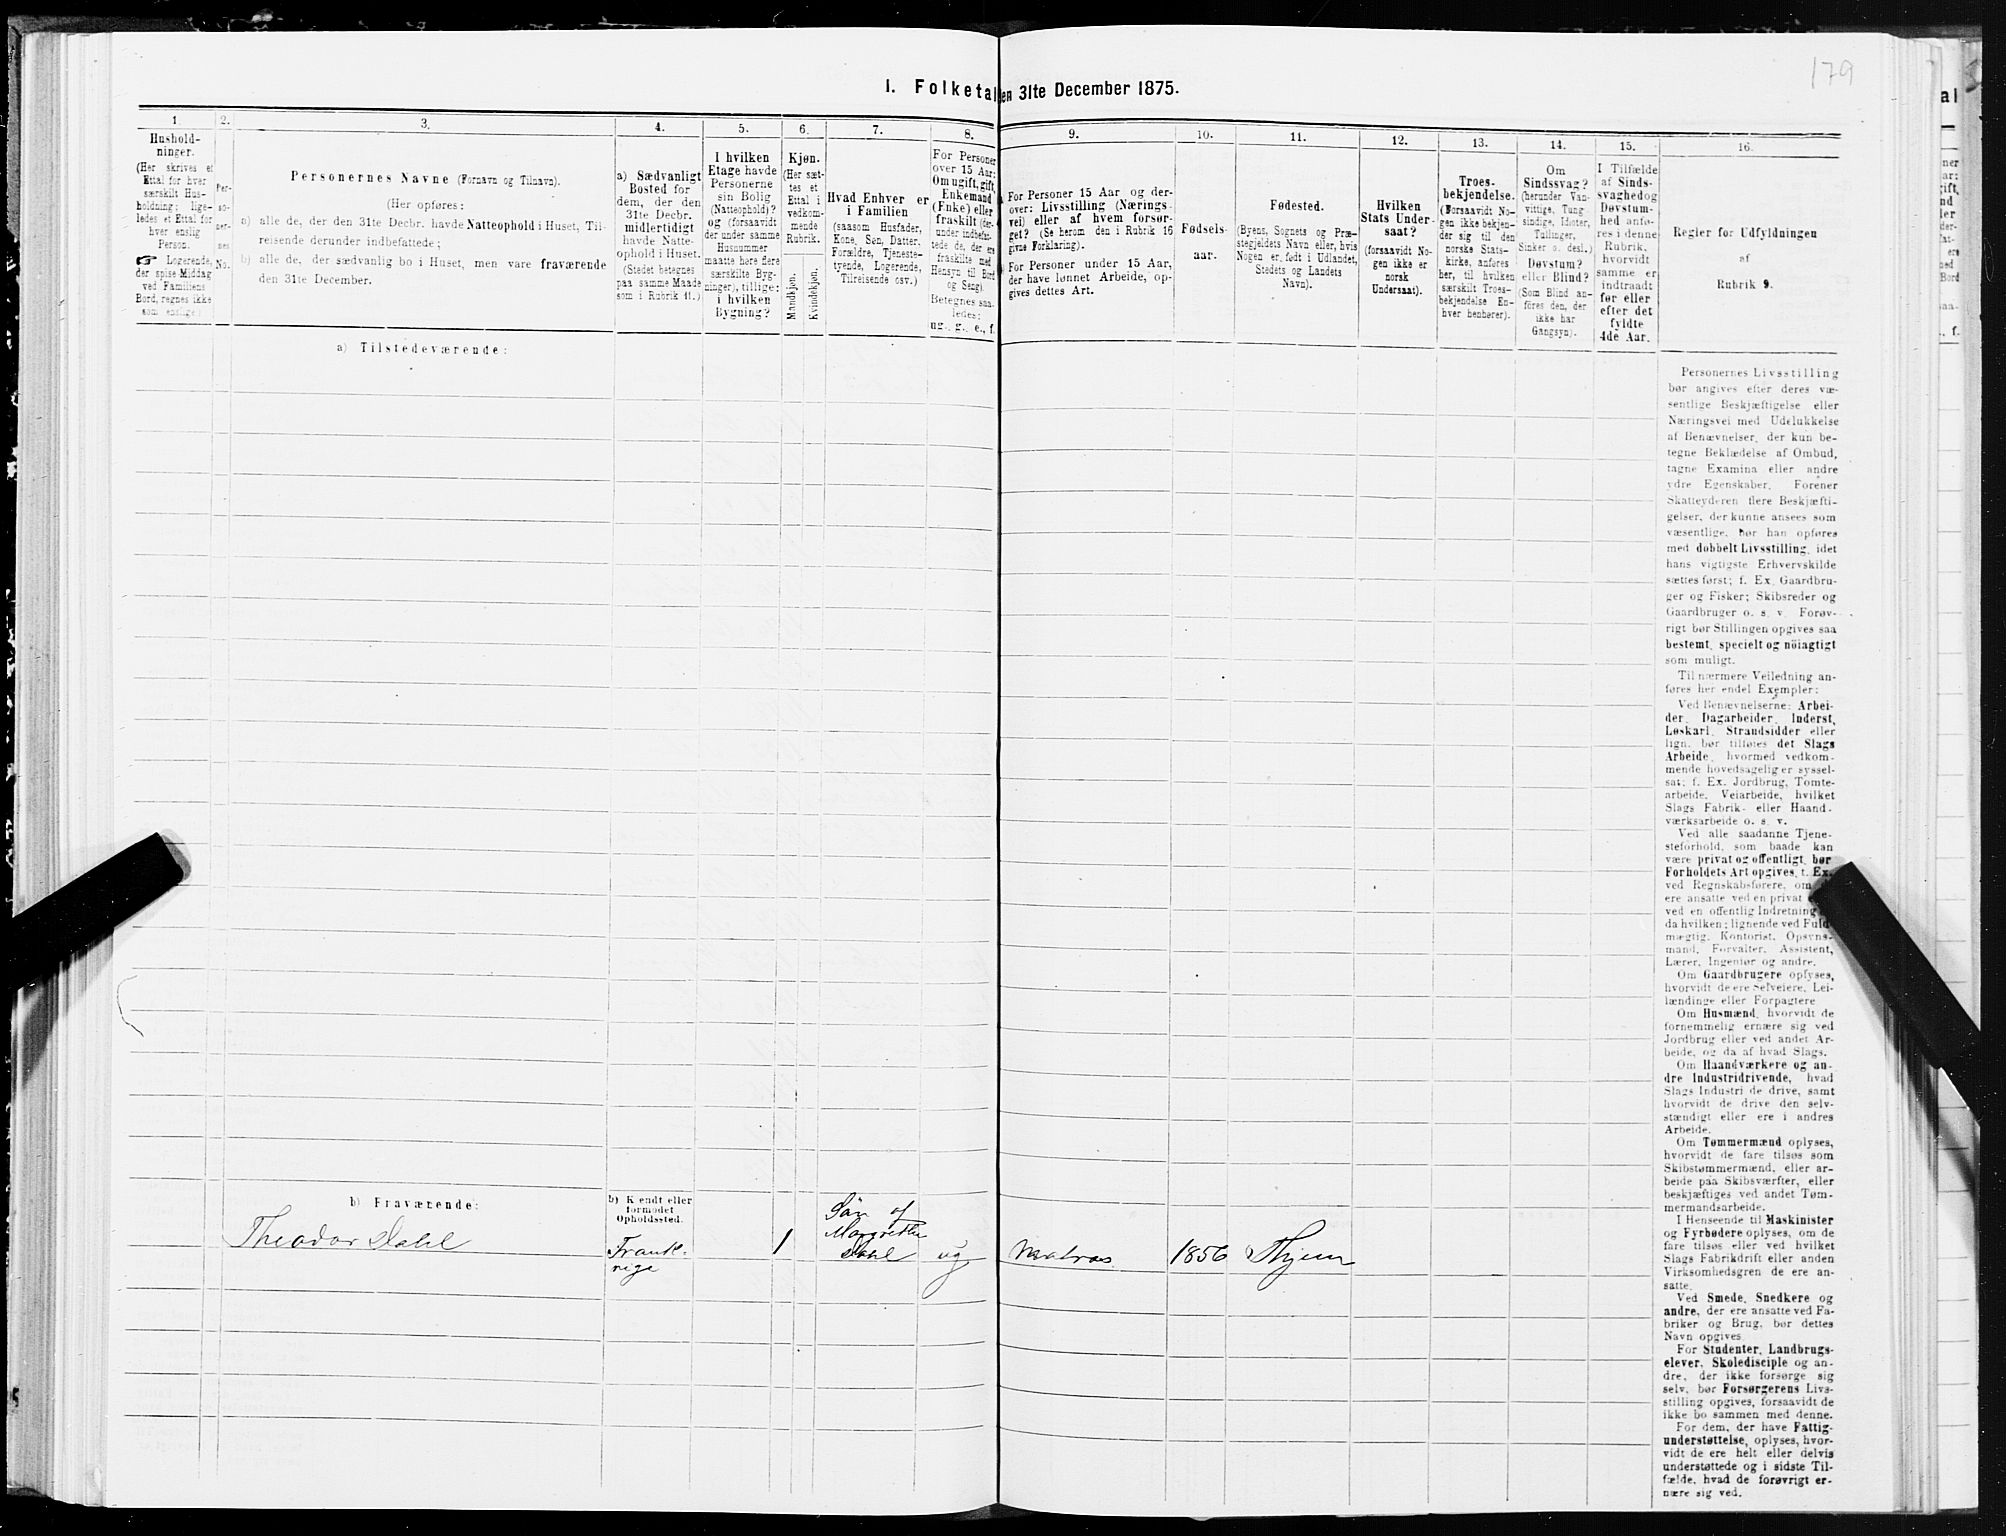 179
I. Folketal den 31te December 1875.
1.
Hushold-
ninger.
(Her skrives et
Ettal for hver
særskilt Hus-
holdning; lige-
ledes et Ettal for
hver enslig
Person.
☞ Logerende,
der spise Middag
ved Familiens
Bord, regnes ikke
som enslige.)
2.
Per-
so-
ner-
nes
No.
3.
Personernes Navne (Fornavn og Tilnavn).
(Her opføres:
a) alle de, der den 31te Decbr. havde Natteophold i Huset, Til-
reisende derunder indbefattede;
b) alle de, der sædvanlig bo i Huset, men vare fraværende
den 31te December.
4.
a) Sædvanligt
Bosted for
dem, der den
31te Decbr.
midlertidigt
havde Natte-
ophold i Huset.
(Stedet betegnes
paa samme Maade
som i Rubrik 11.)
5.
I hvilken
Etage havde
Personerne
sin Bolig
(Natteophold)?
og (forsaavidt
der under samme
Husnummer
maatte høre flere
særskilte Byg-
ninger), tillige:
i hvilken
Bygning?
6.
Kjøn.
(Her sæt-
tes et
Ettal i
vedkom-
mende
Rubrik.
Mandkjøn.
Kvindekjøn.
7.
Hvad Enhver er
i Familien
(saasom Husfader,
Kone, Søn, Datter,
Forældre, Tjeneste-
tyende, Logerende,
Tilreisende osv.)
8.
For Personer
over 15 Aar:
Om ugift, gift,
Enkemand
(Enke) eller
fraskilt (der-
under indbefat-
tede de, der ere
fraskilte med
Hensyn til Bord
og Seng).
Betegnes saa-
ledes:
ug., g., e., f.
9.
For Personer 15 Aar og der-
over: Livsstilling (Nærings-
vei) eller af hvem forsør-
get? (Se herom den i Rubrik 16
givne Forklaring).
For Personer under 15 Aar,
der have lønnet Arbeide, op-
gives dettes Art.
10.
Fødsels-
aar.
11.
Fødested.
(Byens, Sognets og Præ-
stegjeldets Navn eller, hvis
Nogen er født i Udlandet,
Stedets og Landets
Navn).
12.
Hvilken
Stats Under-
saat?
(forsaavidt No-
gen ikke er
norsk
Undersaat).
13.
Troes-
bekjendelse.
(Forsaavidt No-
gen ikke bekjen-
der sig til den
norske Stats-
kirke, anføres
her, til hvilken
særskilt Troes-
bekjendelse En-
hver henhører).
14.
Om
Sindssvag?
(herunder Van-
vittige, Tung-
sindige, Idioter,
Tullinger,
Sinker o. desl.)
Døvstum?
eller Blind?
(Som Blind an-
føres den, der
ikke har
Gangsyn).
15.
I Tilfælde
af Sinds-
svaghed og
Døvstum-
hed anfø-
res i denne
Rubrik,
hvorvidt
samme er
indtraadt
før eller
efter det
fyldte
4de Aar.
16.
Regler for Udfyldningen
af
Rubrik 9.
a) Tilstedeværende:
Personernes Livsstilling
bør angives efter deres væ-
sentlige Beskjæftigelse eller
Næringsvei med Udelukkelse
af Benævnelser, der kun be-
tegne Beklædelse af Ombud,
tagne Examina eller andre
ydre Egenskaber. Forener
Skatteyderen flere Beskjæfti-
gelser, der kunne ansees som
væsentlige, bør han opføres
med dobbelt Livsstilling, idet
hans vigtigste Erhvervskilde
sættes først; f. Ex. Gaardbru-
ger og Fisker; Skibsreder og
Gaardbruger o. s. v. Forøv-
rigt bør Stillingen opgives saa
bestemt, specielt og nöiagtigt
som muligt.
Til nærmere Veiledning an-
føres her endel Exempler:
Ved Benævnelserne: Arbei-
der, Dagarbeider, Inderst,
Løskarl, Strandsidder eller
lign. bør tilføies det Slags
Arbeide, hvormed vedkom-
mende hovedsagelig er syssel-
sat; f. Ex. Jordbrug, Tomte-
arbeide, Veiarbeide, hvilket
Slags Fabrik- eller Haand-
værksarbeide o. s. v.
Ved alle saadanne Tjene-
steforhold, som baade kan
være privat og offentligt, bør
Forholdets Art opgives, f. Ex.
ved Regnskabsførere, om
ere ansatte ved en privat
ved en offentlig Indretning
da hvilken; lignende ved Fuld-
mægtig, Kontorist, Opsyns-
mand, Forvalter, Assistent,
Lærer, Ingeniør og andre.
Om Gaardbrugere oplyses,
hvorvidt de ere Selveiere, Lei-
lændinge eller Forpagtere
Om Husmænd, hvorvidt de
fornemmelig ernære sig ved
Jordbrug eller ved andet Ar-
beide, og da af hvad Slags.
Om Haandværkere og an-
dre Industridrivende, hvad
Slags Industri de drive, samt
hvorvidt de drive den selv-
stændigt eller ere i andres
Arbeide.
Om Tømmermænd oplyses,
hvorvidt de fare tilsøs som
Skibstømmermænd, eller ar-
beide paa Skibsværfter, eller
beskjæftiges ved andet Tøm-
mermandsarbeide.
I Henseende til Maskinister
og Fyrbødere oplyses, om de
fare tilsøs eller ved hvilket
Slags Fabrikdrift eller anden
Virksomhedsgren de ere an-
satte.
Ved Smede, Snedkere og
andre, der ere ansatte ved Fa-
briker og Brug, bør dettes
Navn opgives.
For Studenter, Landbrugs-
elever, Skoledisciple og an-
dre, der ikke forsørge sig
selv, bør Forsørgerens Livs-
stilling opgives, forsaavidt de
ikke bo sammen med denne.
For dem, der have Fattig-
understøttelse, oplyses, hvor-
vidt de ere helt eller delvis
understøttede og i sidste Til-
fælde, hvad de forøvrigt er-
nære sig ved.
b) Fraværende:
b) Kjendt eller
formodet
Opholdssted.
Theodor Dahl
Frank-
rige
1
Søn af
Margrethe
Dahl
ug
Matros
1856
Thjem